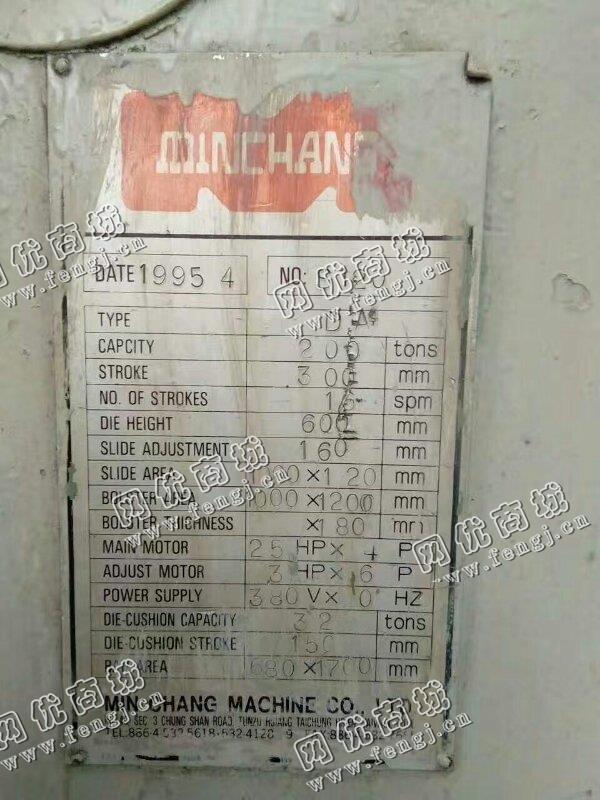 MINCHANG
DATE 1995 4 NO:
TYPE
CAPCITY 200 tons
STROKE 300 mm
NO. OF STROKES spm
DIE HEIGHT 600 mm
SLIDE ADJUSTMENT 160 mm
SLIDE AREA mm
BOLSTER AREA mm
BOLSTER THICHNESS ×180 mm
MAIN MOTOR 25 HP× 4 P
ADJUST MOTOR 3 HP× 6 P
POWER SUPPLY 380 V× HZ
DIE-CUSHION CAPACITY 32 tons
DIE-CUSHION STROKE 150 mm
PAD AREA 680×1700 mm
MIN CHANG MACHINE CO., LTD
SEC 3 CHUNG SHAN ROAD, TUNZU HSIANG TAICHUNG
TEL:886-4
网优商城
www.fengj.cn
网优商城
www.fengj.cn
网优商城
www.fengj.cn
网优商城
www.fengj.cn
网优商城
www.fengj.cn